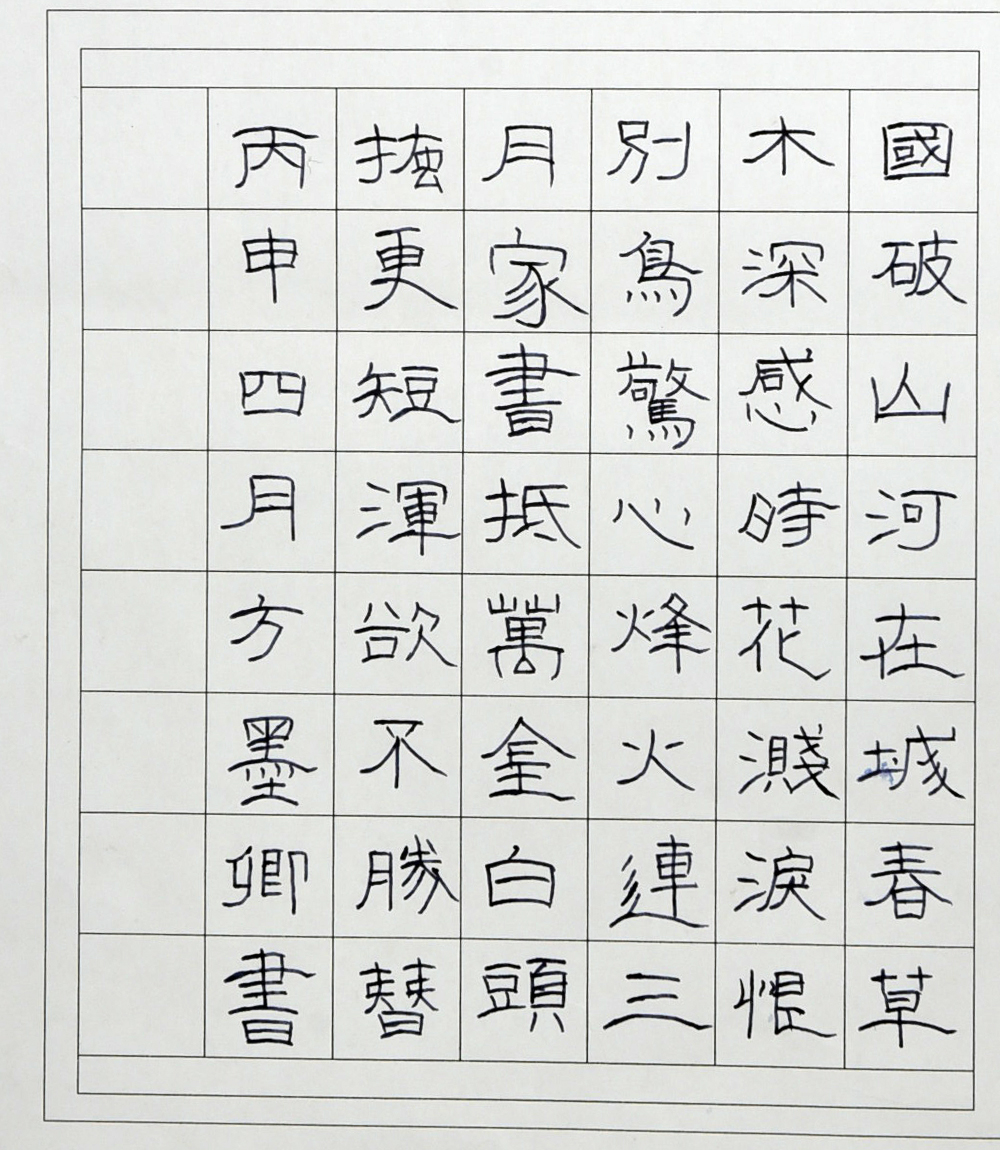 國破山河在城春草
木深感時花濺淚恨
別鳥驚心烽火連三
月家書抵萬金白頭
搔更短渾欲不勝替
丙申四月方墨卿書